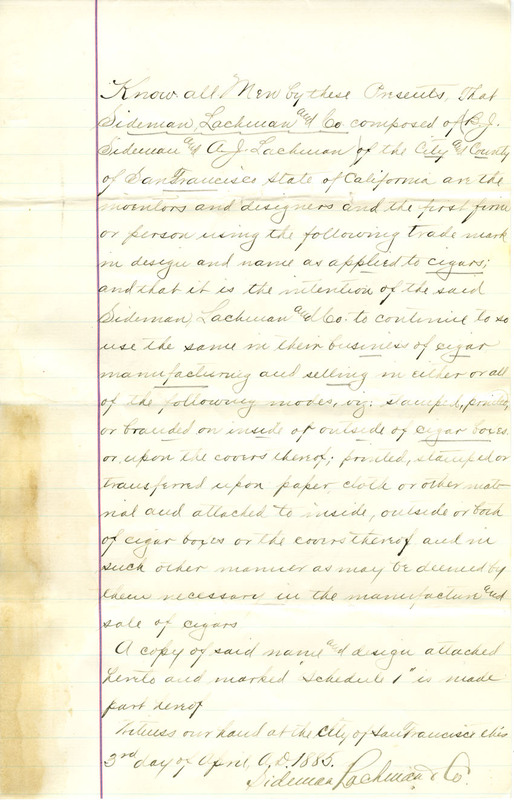 Know all Men by these Presents, That
Sideman, Lachman and Co composed of B. J.
Sideman and A J. Lachman of the City and County
of San Francisco State of California are the
inventors and designers and the first firm
or person using the following trade mark
in design and name as applied to cigars;
and that it is the intention of the said
Sideman, Lachman and Co. to continue to so
use the same in their business of cigar
manufacturing and selling in either or all
of the following modes, viz: stamped, printed,
or branded on inside or outside of cigar boxes
or upon the covers thereof; printed, stamped or
transferred upon paper, cloth or other mate-
rial and attached to inside, outside or both
of cigar boxes or the covers thereof and in
such other manner as may be deemed by
them necessary in the manufacture and
sale of cigars
A copy of said name and design attached
hereto and marked "Schedule 1" is made
part hereof
Witness our hand at the City of San Francisco this
3rd day of April, A.D. 1885.
Sideman Lachman & Co.